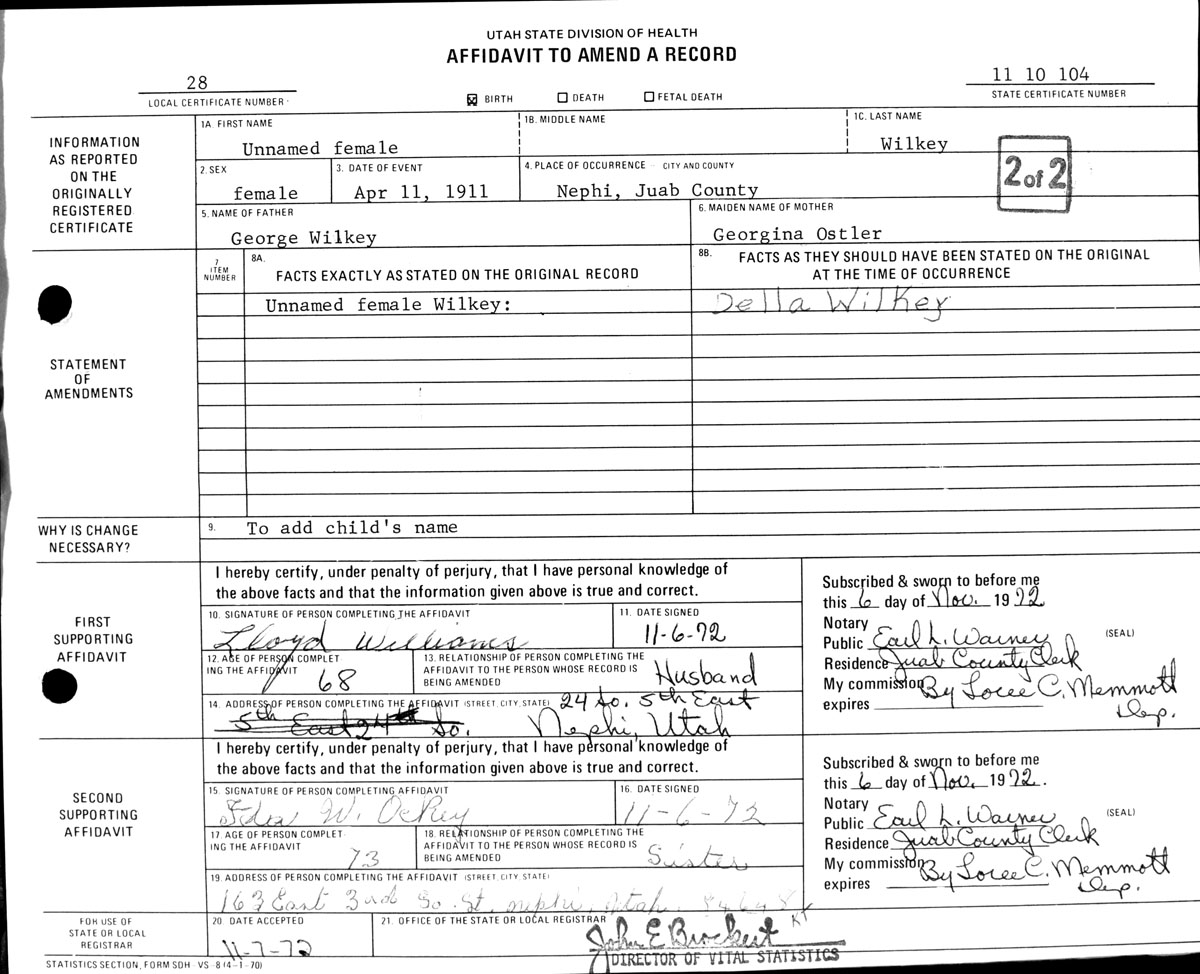 UTAH STATE DIVISION OF HEALTH
AFFIDAVIT TO AMEND A RECORD
28
LOCAL CERTIFICATE NUMBER
☒ BIRTH ☐ DEATH ☐ FETAL DEATH
11 10 104
STATE CERTIFICATE NUMBER
INFORMATION
AS REPORTED
ON THE
ORIGINALLY
REGISTERED
CERTIFICATE
1A. FIRST NAME
Unnamed female
1B. MIDDLE NAME
1C. LAST NAME
Wilkey
2. SEX
female
3. DATE OF EVENT
Apr 11, 1911
4. PLACE OF OCCURRENCE - CITY AND COUNTY
Nephi, Juab County
2 of 2
5. NAME OF FATHER
George Wilkey
6. MAIDEN NAME OF MOTHER
Georgina Ostler
STATEMENT
OF
AMENDMENTS
7
ITEM
NUMBER
8A.
FACTS EXACTLY AS STATED ON THE ORIGINAL RECORD
8B. FACTS AS THEY SHOULD HAVE BEEN STATED ON THE ORIGINAL
AT THE TIME OF OCCURRENCE
Unnamed female Wilkey:
Della Wilkey
WHY IS CHANGE
NECESSARY?
9. To add child's name
FIRST
SUPPORTING
AFFIDAVIT
I hereby certify, under penalty of perjury, that I have personal knowledge of
the above facts and that the information given above is true and correct.
10. SIGNATURE OF PERSON COMPLETING THE AFFIDAVIT
Lloyd Williams
11. DATE SIGNED
11-6-72
12. AGE OF PERSON COMPLET
ING THE AFFIDAVIT
68
13. RELATIONSHIP OF PERSON COMPLETING THE
AFFIDAVIT TO THE PERSON WHOSE RECORD IS
BEING AMENDED
Husband
14. ADDRESS OF PERSON COMPLETING THE AFFIDAVIT (STREET, CITY, STATE) 24 So. 5th East
5th East 24th So. Nephi, Utah
Subscribed & sworn to before me
this 6 day of Nov. 1972
Notary
Public Earl L. Warner (SEAL)
Residence Juab County Clerk
My commission By Loree C. Memmott
expires Dep.
SECOND
SUPPORTING
AFFIDAVIT
I hereby certify, under penalty of perjury, that I have personal knowledge of
the above facts and that the information given above is true and correct.
15. SIGNATURE OF PERSON COMPLETING AFFIDAVIT
W. Ockey
16. DATE SIGNED
11-6-72
17. AGE OF PERSON COMPLET
ING THE AFFIDAVIT
73
18. RELATIONSHIP OF PERSON COMPLETING THE
AFFIDAVIT TO THE PERSON WHOSE RECORD IS
BEING AMENDED
Sister
19. ADDRESS OF PERSON COMPLETING THE AFFIDAVIT (STREET, CITY, STATE)
163 East 3rd So. St. nephi, Utah. 84648
Subscribed & sworn to before me
this 6 day of Nov. 1972.
Notary
Public Earl L. Warner (SEAL)
Residence Juab County Clerk
My commission By Loree C. Memmott
expires Dep.
FOR USE OF
STATE OR LOCAL
REGISTRAR
20. DATE ACCEPTED
11-7-72
21. OFFICE OF THE STATE OR LOCAL REGISTRAR
John E Brockert KT
DIRECTOR OF VITAL STATISTICS
STATISTICS SECTION, FORM SDH - VS - 8 (4-1-70)